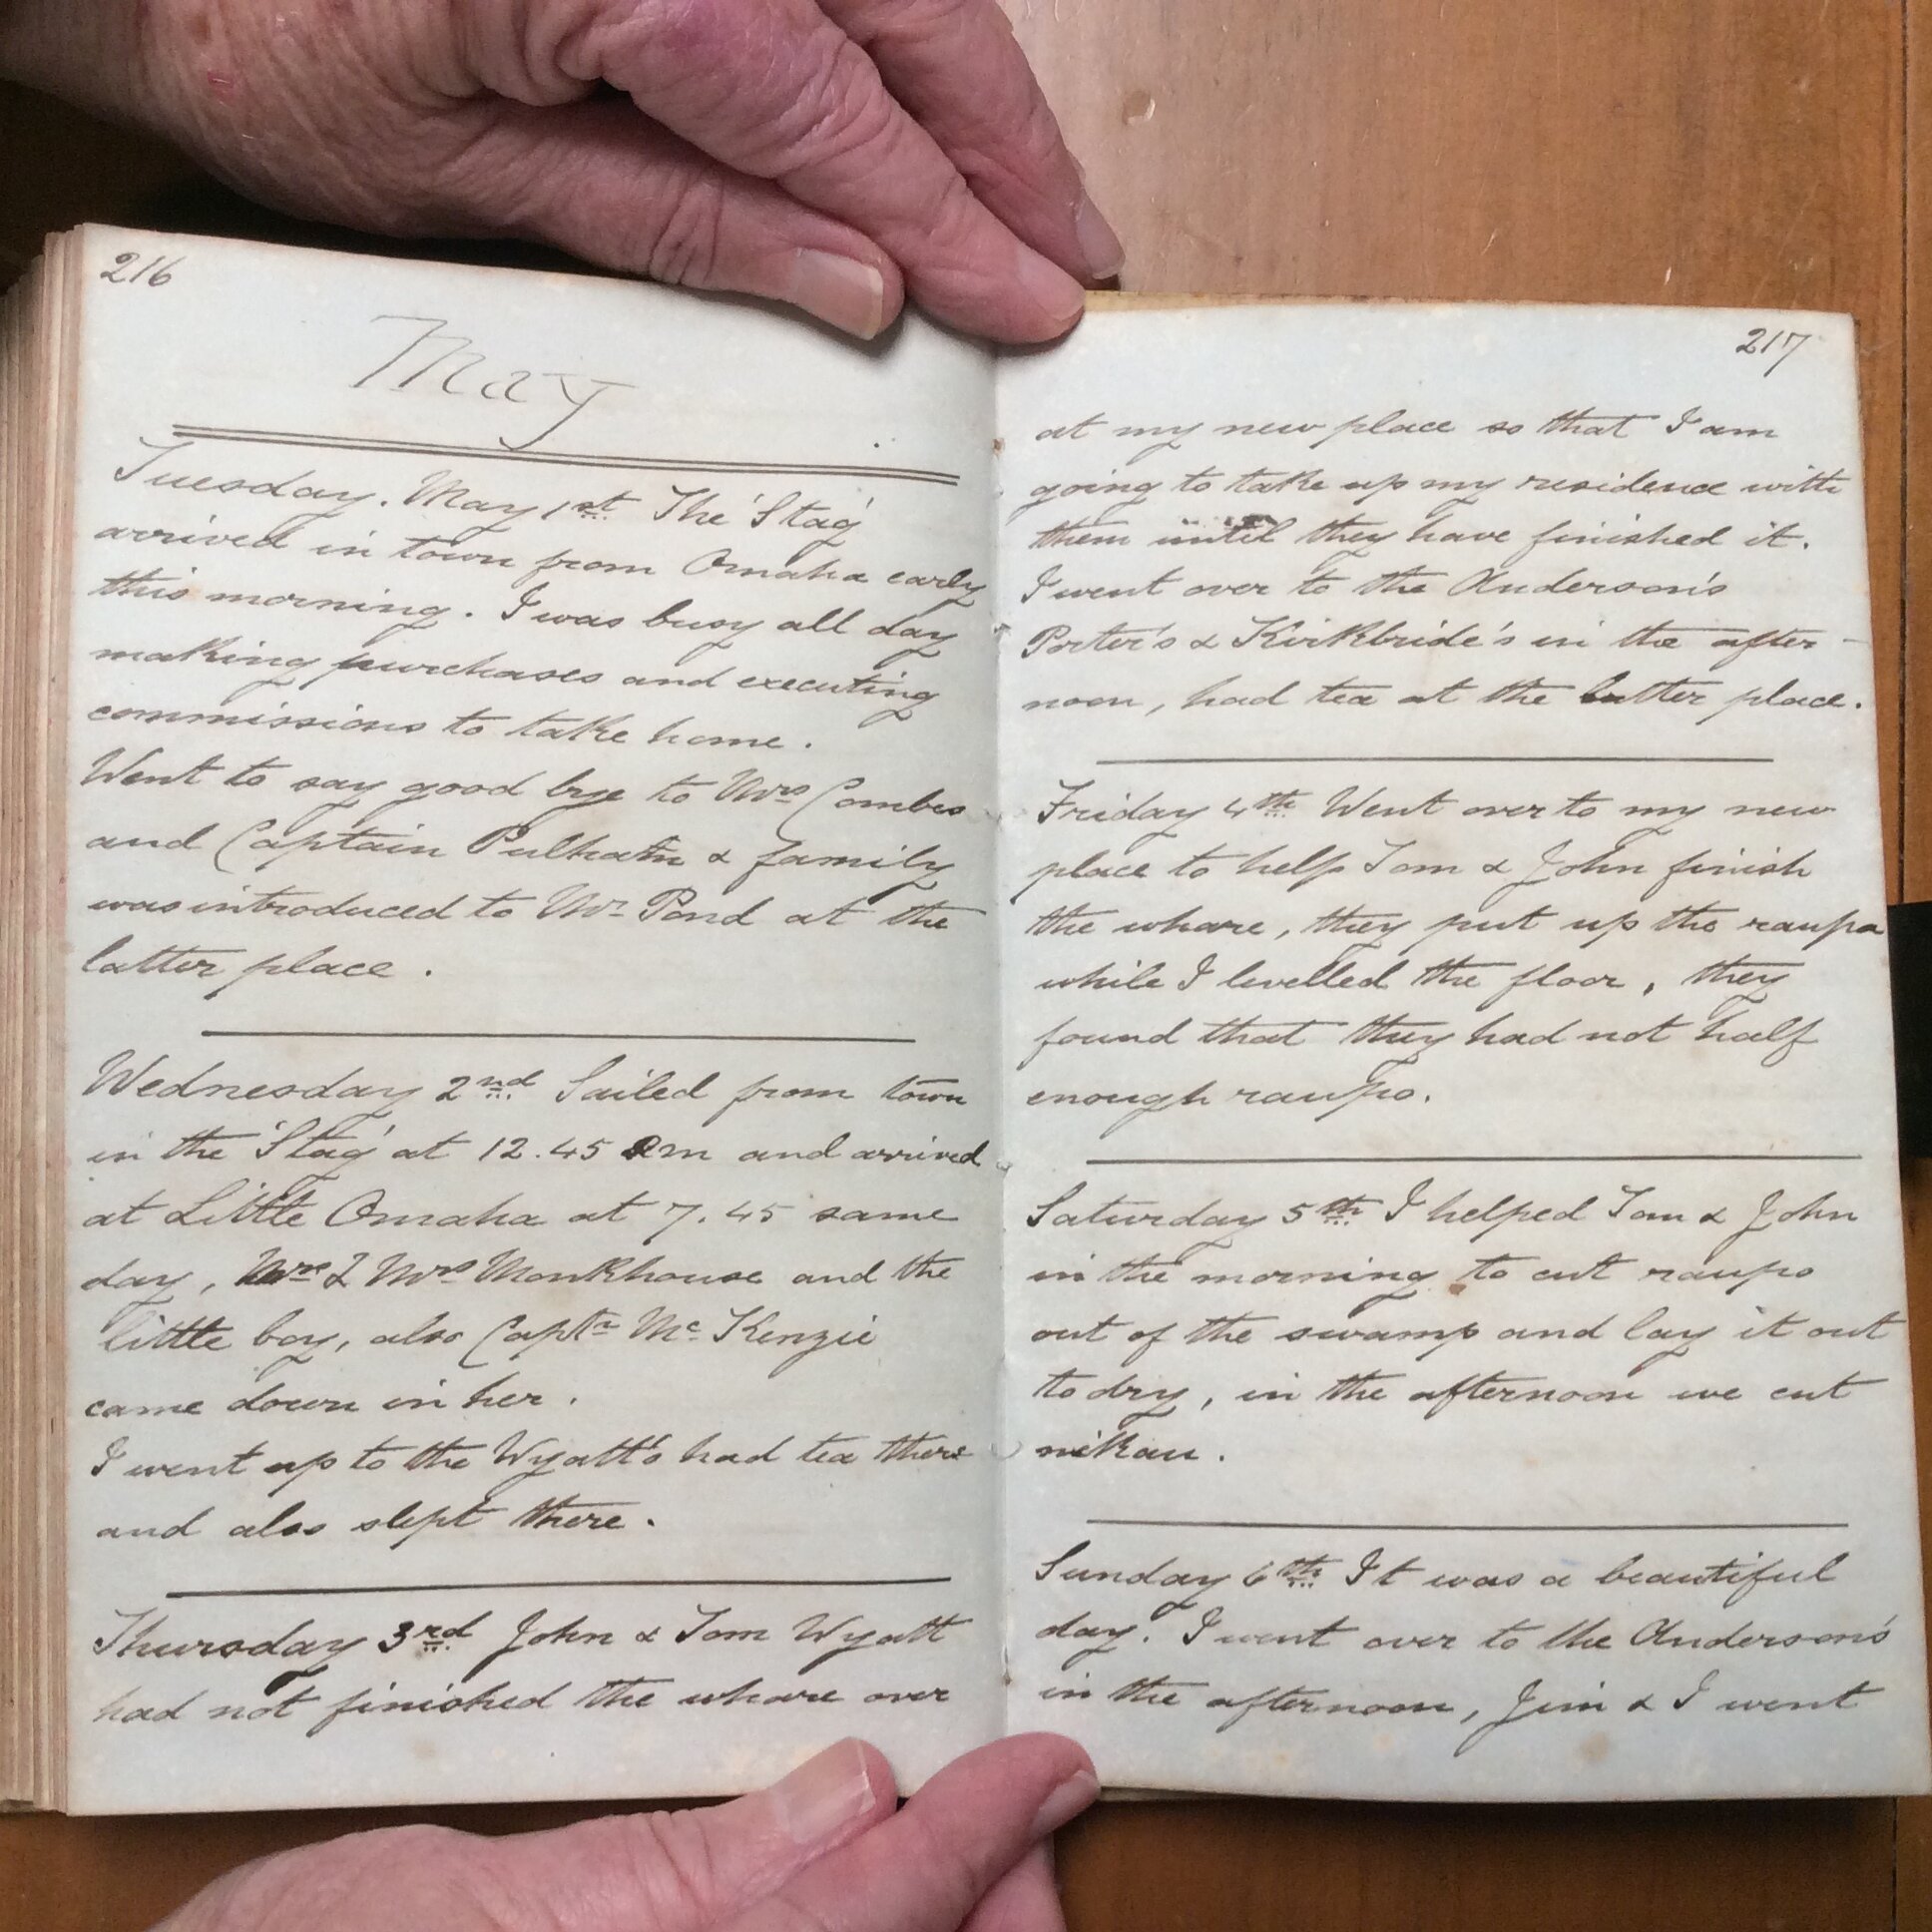 216
May
Tuesday. May 1st The 'Stag'
arrived in town from Omaha early
this morning. I was busy all day
making purchases and executing
commissions to take home.
Went to say good bye to Mrs Combes
and Captain Pulham & family
was introduced to Mr Pond at the
latter place.
Wednesday 2nd Sailed from town
in the 'Stag' at 12.45 am and arrived
at Little Omaha at 7.45 same
day, Mr & Mrs Monkhouse and the
little boy, also Captn Mc Kenzie
came down in her.
I went up to the Wyatt's had tea there
and also slept there.
Thursday 3rd John & Tom Wyatt
had not finished the whare over
217
at my new place so that I am
going to take up my residence with
them until they have finished it.
I went over to the Anderson's
Porter's & Kirkbride's in the after-
noon, had tea at the latter place.
Friday 4th Went over to my new
place to help Tom & John finish
the whare, they put up the raupo
while I levelled the floor, they
found that they had not half
enough raupo.
Saturday 5th I helped Tom & John
in the morning to cut raupo
out of the swamp and lay it out
to dry, in the afternoon we cut
nikau.
Sunday 6th It was a beautiful
day. I went over to the Anderson's
in the afternoon, Jim & I went